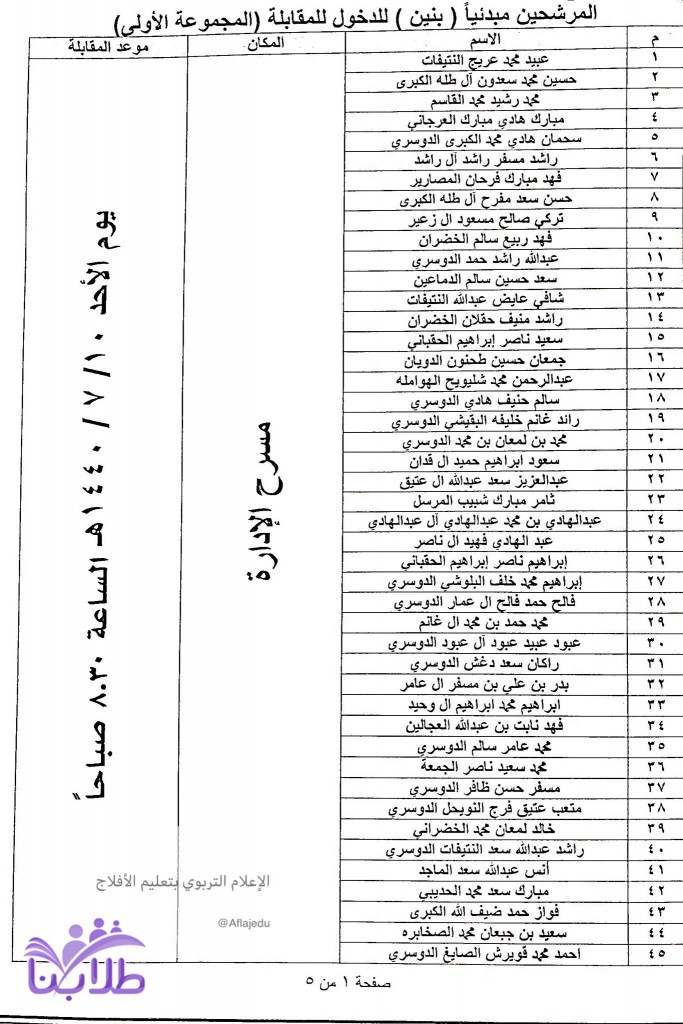 المرشحين مبدئياً ( بنين ) للدخول للمقابلة (المجموعة الأولى)
م الاسم المكان موعد المقابلة
١ عبيد محمد عريج النتيفات
٢ حسين محمد سعدون آل طله الكبرى
٣ محمد رشيد محمد القاسم
٤ مبارك هادي مبارك العرجاني
٥ سحمان هادي محمد الكبرى الدوسري
٦ راشد مسفر راشد آل راشد
٧ فهد مبارك فرحان المصارير
٨ حسن سعد مفرح آل طله الكبرى
٩ تركي صالح مسعود ال زعير
١٠ فهد ربيع سالم الخضران
١١ عبدالله راشد حمد الدوسري
١٢ سعد حسين سالم الدماعين
١٣ شافي عايض عبدالله النتيفات
١٤ راشد منيف حقلان الخضران
١٥ سعيد ناصر إبراهيم الحقباني
١٦ جمعان حسين طحنون الدويان
١٧ عبدالرحمن محمد شليويح الهوامله
١٨ سالم حنيف هادي الدوسري
١٩ رائد غانم خليفه البقيشي الدوسري
٢٠ محمد بن لمعان بن محمد الدوسري
٢١ سعود ابراهيم حميد ال قدان
٢٢ عبدالعزيز سعد عبدالله ال عتيق
٢٣ ثامر مبارك شبيب المرسل
٢٤ عبدالهادي بن محمد عبدالهادي آل عبدالهادي
٢٥ عبد الهادي فهيد ال ناصر
٢٦ إبراهيم ناصر إبراهيم الحقباني
٢٧ إبراهيم محمد خلف البلوشي الدوسري
٢٨ فالح حمد فالح ال عمار الدوسري
٢٩ محمد حمد بن محمد ال غانم
٣٠ عبود عبيد عبود آل عبود الدوسري
٣١ راكان سعد دغش الدوسري
٣٢ بدر بن علي بن مسفر ال عامر
٣٣ ابراهيم محمد ابراهيم ال وحيد
٣٤ فهد نابت بن عبدالله العجالين
٣٥ محمد عامر سالم الدوسري
٣٦ محمد سعيد ناصر الجمعة
٣٧ مسفر حسن ظافر الدوسري
٣٨ متعب عتيق فرج النويحل الدوسري
٣٩ خالد لمعان محمد الخضراني
٤٠ راشد عبدالله سعد النتيفات الدوسري
٤١ أنس عبدالله سعد الماجد
٤٢ مبارك سعد محمد الحديبي
٤٣ فواز حمد ضيف الله الكبرى
٤٤ سعيد بن جبعان محمد الصخابره
٤٥ احمد محمد قويرش الصايغ الدوسري
مسرح الإدارة
يوم الأحد ١٠ / ٧ / ١٤٤٠هـ الساعة ٨.٣٠ صباحاً
الإعلام التربوي بتعليم الأفلاج
@Aflajedu
طلابنا
صفحة ١ من ٥